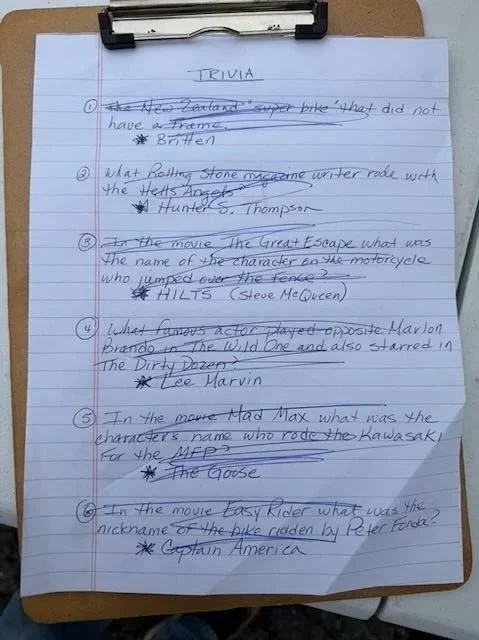 TRIVIA
① the New Zealand "super bike" that did not
have a frame.
* Britten
② what Rolling Stone magazine writer rode with
the Hells Angels?
* Hunter S. Thompson
③ In the movie The Great Escape what was
The name of the character on the motorcycle
who jumped over the fence?
* HILTS (Steve McQueen)
④ What famous actor played opposite Marlon
Brando in The Wild One and also starred in
The Dirty Dozen?
* Lee Marvin
⑤ In the movie Mad Max what was the
characters name who rode the Kawasaki
For the MFP?
* The Goose
⑥ In the movie Easy Rider what was the
nickname of the bike ridden by Peter Fonda?
* Captain America